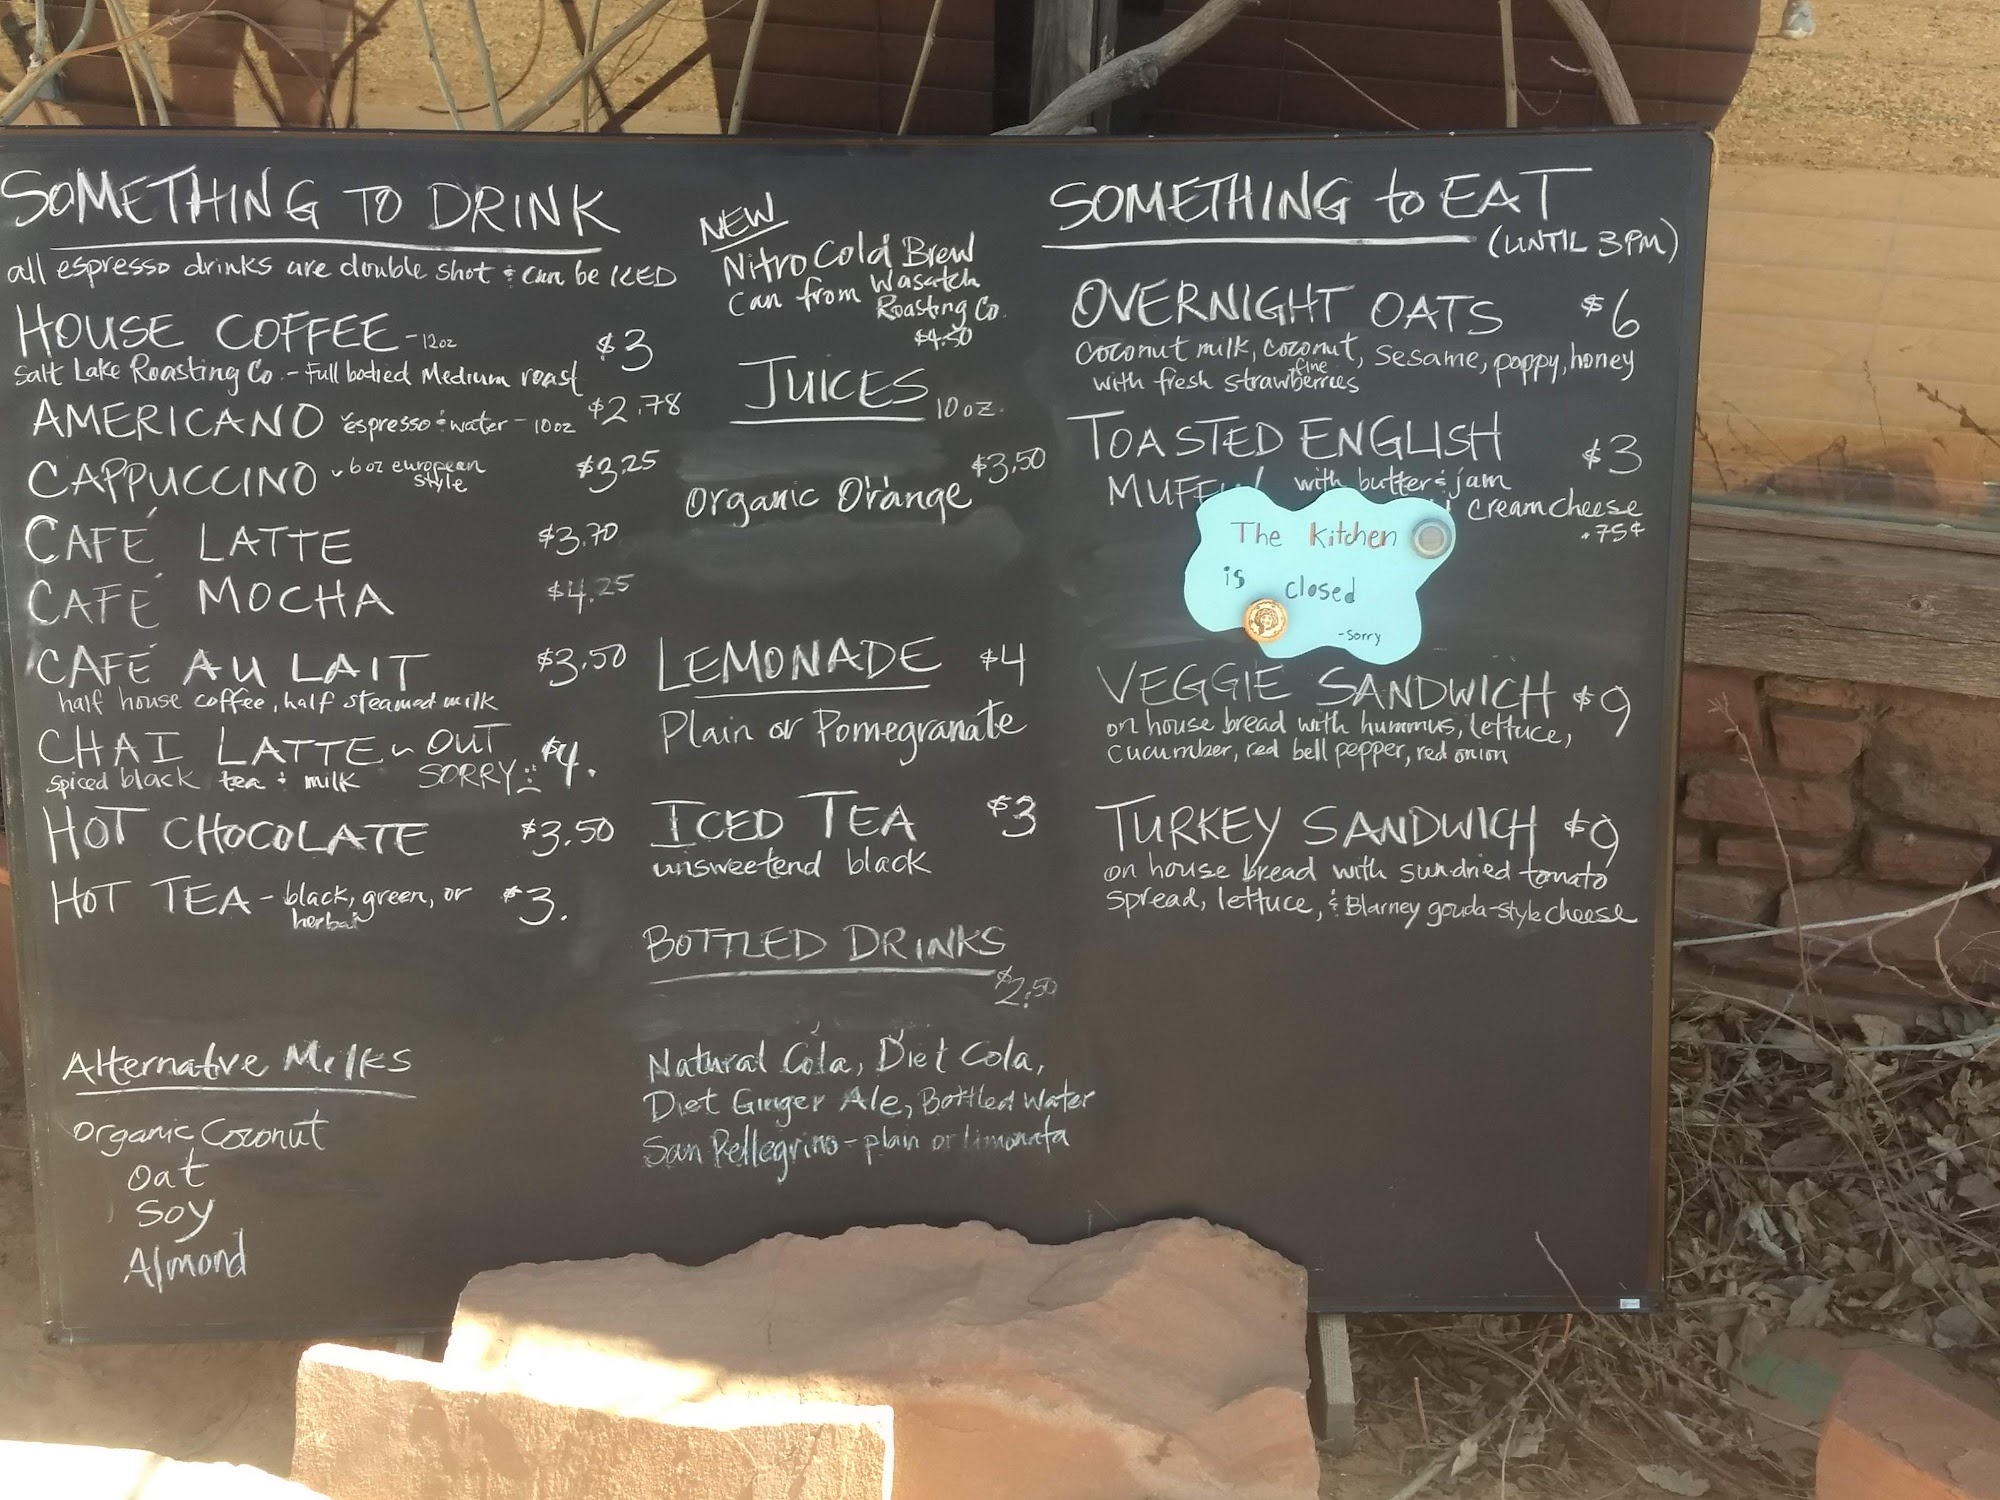 SOMETHING TO DRINK
all espresso drinks are double shot & can be ICED
HOUSE COFFEE - 12oz $3
Salt Lake Roasting Co. - Full bodied Medium roast
AMERICANO espresso & water - 10oz $2.78
CAPPUCCINO ~ 6oz european style $3.25
CAFÉ LATTE $3.70
CAFÉ MOCHA $4.25
CAFÉ AU LAIT $3.50
half house coffee, half steamed milk
CHAI LATTE ~ OUT $4.
spiced black tea & milk SORRY :(
HOT CHOCOLATE $3.50
HOT TEA - black, green, or $3.
herbal
Alternative Milks
Organic Coconut
Oat
Soy
Almond
NEW
Nitro Cold Brew
Can from Wasatch
Roasting Co.
$4.50
JUICES 10oz.
$3.50
Organic Orange
LEMONADE $4
Plain or Pomegranate
ICED TEA $3
unsweetend black
BOTTLED DRINKS
$2.50
Natural Cola, Diet Cola,
Diet Ginger Ale, Bottled Water
San Pellegrino - plain or limonata
SOMETHING to EAT
(UNTIL 3PM)
OVERNIGHT OATS $6
Coconut milk, coconut, sesame, poppy, honey
fine
with fresh strawberries
TOASTED ENGLISH $3
with butter & jam
creamcheese
.75¢
The Kitchen
is closed
-Sorry
VEGGIE SANDWICH $9
on house bread with hummus, lettuce,
cucumber, red bell pepper, red onion
TURKEY SANDWICH $9
on house bread with sundried tomato
spread, lettuce, & Blarney gouda-style cheese